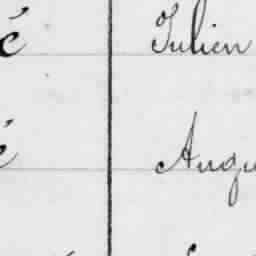 é Julien
é Augu